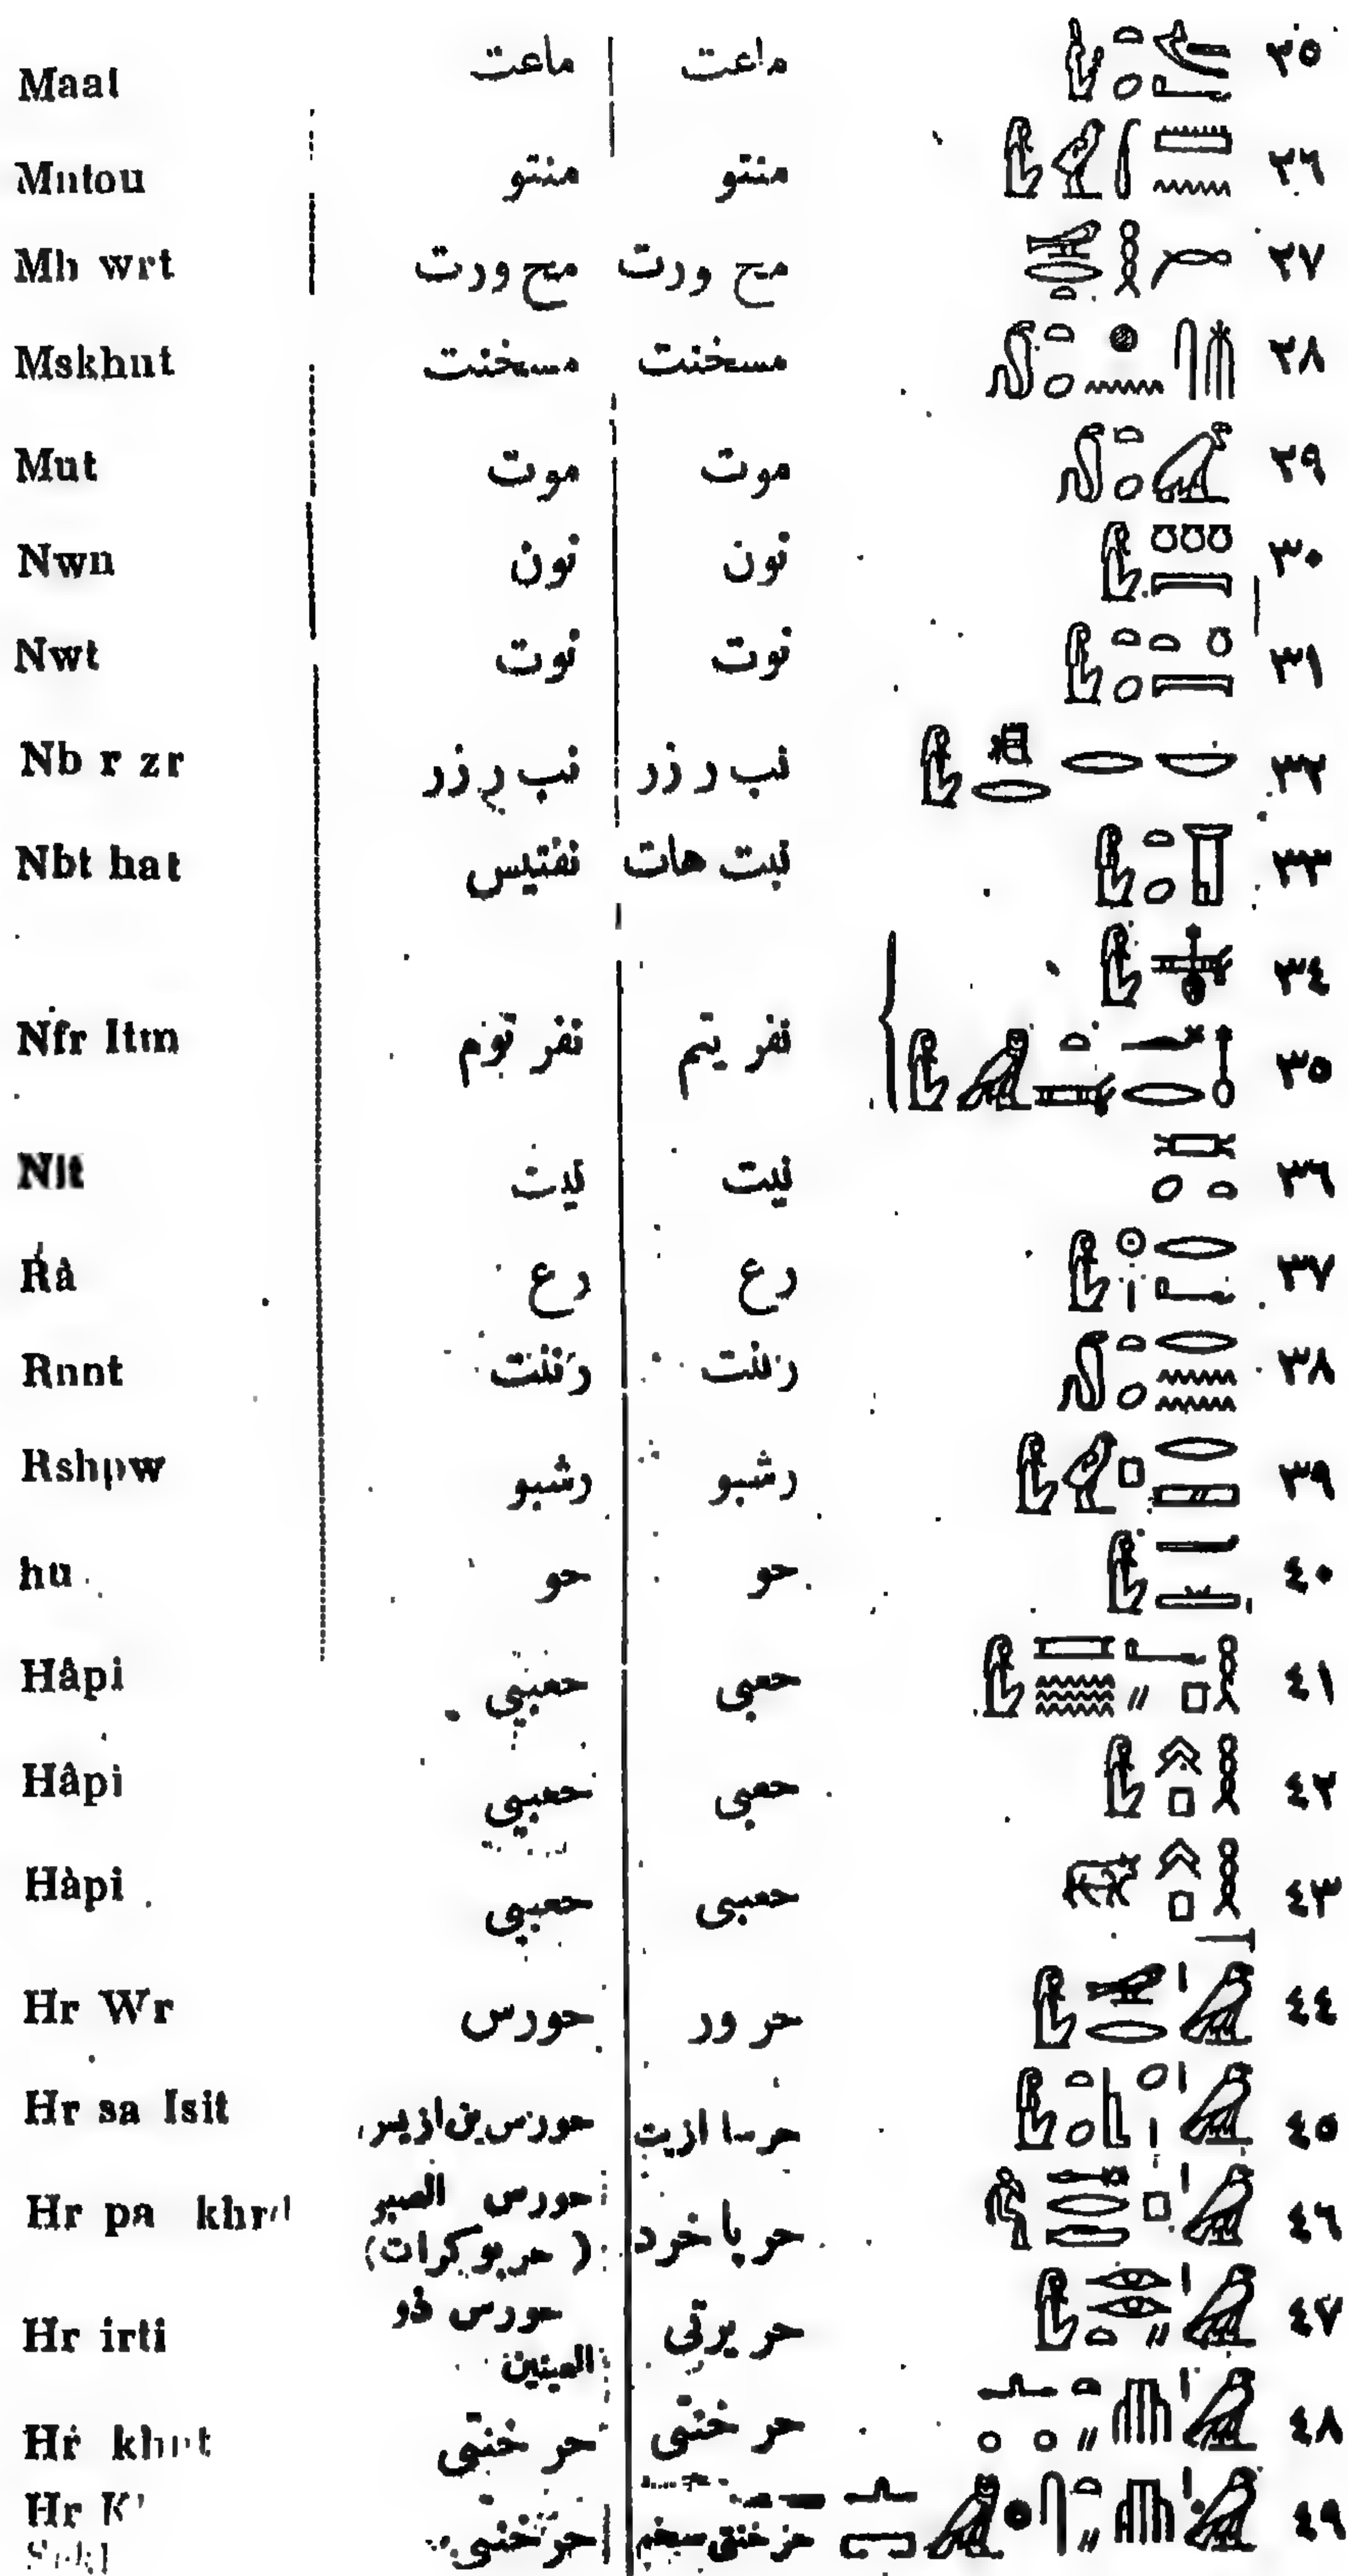 Maat ماعت ماعت ٢٥
Mntou منتو منتو ٢٦
Mh wrt مح ورت مح ورت ٢٧
Mskhnt مسخنت مسخنت ٢٨
Mut موت موت ٢٩
Nwn نون نون ٣٠
Nwt نوت نوت ٣١
Nb r zr نب ر زر نب ر زر ٣٢
Nbt hat نفتيس نبت هات ٣٣
٣٤
Nfr Itm نفر توم نفر يتم ٣٥
Nit نيت نيت ٣٦
Râ رع رع ٣٧
Rnnt رننت رننت ٣٨
Rshpw رشبو رشبو ٣٩
hu حو حو ٤٠
Hâpi حعبى حعبى ٤١
Hâpi حعبى حعبى ٤٢
Hàpi حعبى حعبى ٤٣
Hr Wr حورس حر ور ٤٤
Hr sa Isit حورس بن ازيس حر سا ازيت ٤٥
Hr pa حورس حر با خرد ٤٦
( حر بو كرات)
Hr irti حورس ذو حر يرتى ٤٧
العينين
Hr حر خنتى حر خنتى ٤٨
Hr حر خنتى حر خنتى سخم ٤٩